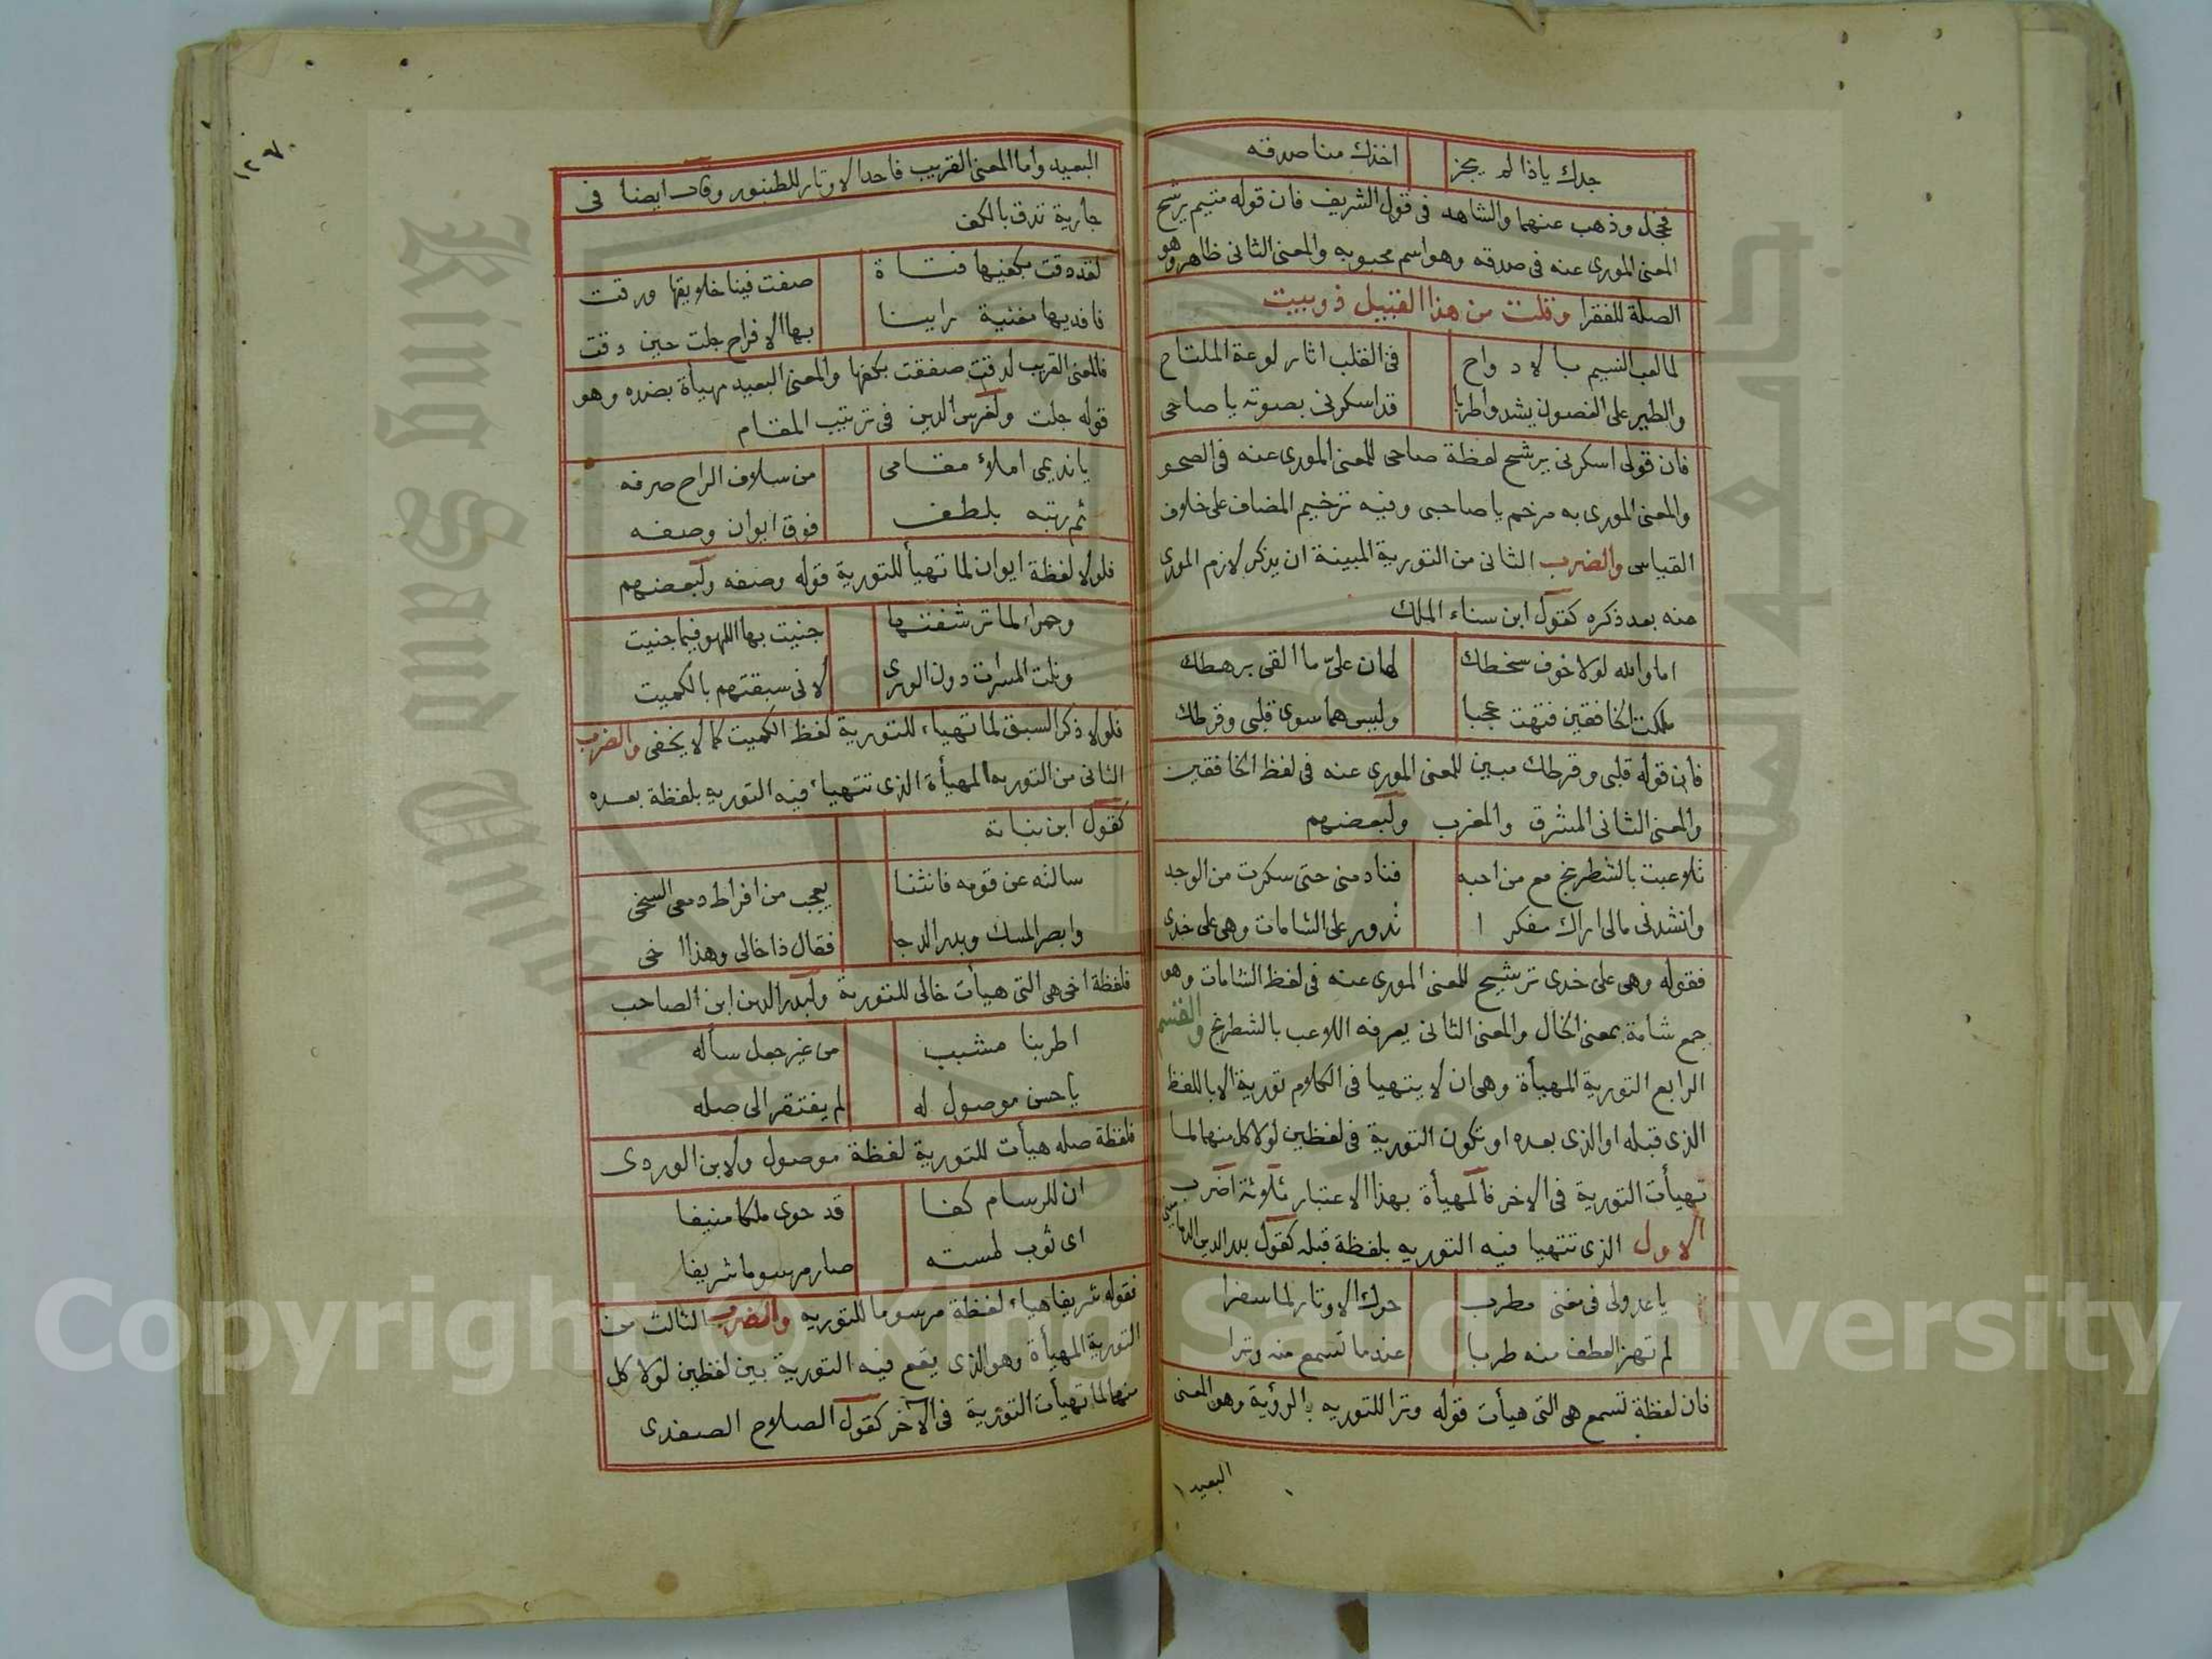 جدك ياذا لم يجز اخذك منا صدقه
فخجل وذهب عنهما والشاهد فى قول الشريف فان قوله متيم يرشح
المعنى المورى عنه فى صدقه وهو اسم محبوبه والمعنى الثانى ظاهر وهو
الصلة للفقرا وقلت من هذا القبيل ذو بيت
لما لعب النسيم بالادواح فى القلب اثار لوعة الملتاح
والطير على الغصون يشدو اطربا قد اسكرنى بصوته يا صاحى
فان قولى اسكرنى يرشح لفظة صاحى للمعنى المورى عنه فى الصحو
والمعنى المورى به مرخم يا صاحبى وفيه ترخيم المضاف على خلاف
القياس والضرب الثانى من التورية المبينة ان يذكر لازم المورى
عنه بعد ذكره كقول ابن سناء الملك
اما والله لولا خوف سخطك لهان علىّ ما القى برهطك
ملكت الخافقين فتهت عجبا وليس هما سوى قلبى وقرطك
فان قوله قلبى وقرطك مبين للمعنى المورى عنه فى لفظ الخافقين
والمعنى الثانى المشرق والمغرب ولبعضهم
تلاعبت بالشطرنج مع من احبه فنادمنى حتى سكرت من الوجد
وانشدنى مالى اراك مفكرا تدور على الشامات وهى على خدى
فقوله وهى على خدى ترشيح للمعنى المورى عنه فى لفظ الشامات وهو
جمع شامة بمعنى الخال والمعنى الثانى يعرفه اللاعب بالشطرنج والقسم
الرابع التورية المهيأة وهى ان لا يتهيا فى الكلام تورية الا باللفظ
الذى قبله او الذى بعده او تكون التورية فى لفظين لولا كل منهما لما
تهيأت التورية فى الاخر فالمهيأة بهذا الاعتبار ثلاثة اضرب
الاول الذى تتهيا فيه التوريه بلفظة قبله كقول بدر الدين الدمامينى
يا عدولى فى مغنى مطرب حرك الاوتار لما سفرا
لم تهز العطف منه طربا عندما تسمع منه وترا
فان لفظة تسمع هى التى هيأت قوله وترا للتوريه بالرؤية وهو المعنى
البعيد
١٢٧
البعيد واما المعنى القريب فاحد الاوتار للطنبور وقال ايضا فى
جارية تدق بالكف
لقد دقت بكفيها فتاة صفت فينا خلايقها ورقت
فافديها مغنية راينا بها الافراح جلت حين دقت
فالمعنى القريب لدقت صفقت بكفها والمعنى البعيد مهيأة بضده وهو
قوله جلت ولغرس الدين فى ترتيب المقام
يا نديمى املأ مقامى من سلاف الراح صرفه
ثم رتبه بلطف فوق ايوان وصفه
فلولا لفظة ايوان لما تهيأ للتورية قوله وصفه ولبعضهم
وحمراء لما ترشفتها جنيت بها اللهو فيما جنيت
ونلت المسرات دون الورى لانى سبقتهم بالكميت
فلولا ذكر السبق لما تهياء للتورية لفظ الكميت كما لا يخفى والضرب
الثانى من التوريه المهيأة الذى تتهياء فيه التوريه بلفظة بعده
كقول ابن نباتة
سالته عن قومه فانثنا يعجب من افراط دمعى السخى
وابصر المسك وبدر الدجا فقال ذا خالى وهذا اخى
فلفظة اخى هى التى هيأت خالى للتورية ولبدر الدين ابن الصاحب
اطربنا مشبب من غير جعل سأله
يا حسن موصول له لم يفتقر الى صله
فلفظة صله هيأت للتورية لفظة موصول ولابن الوردى
ان للرسام كفا قد حوى ملكا منيفا
اى ثوب لمسته صار مرسوما شريفا
فقوله شريفا هياء لفظة مرسوما للتوريه والضرب الثالث من
التورية المهيأة وهو الذى يقع فيه التورية بين لفظين لولا كل
منهما لما تهيأت التورية فى الآخر كقول الصلاح الصفدى
Copyright © King Saud University